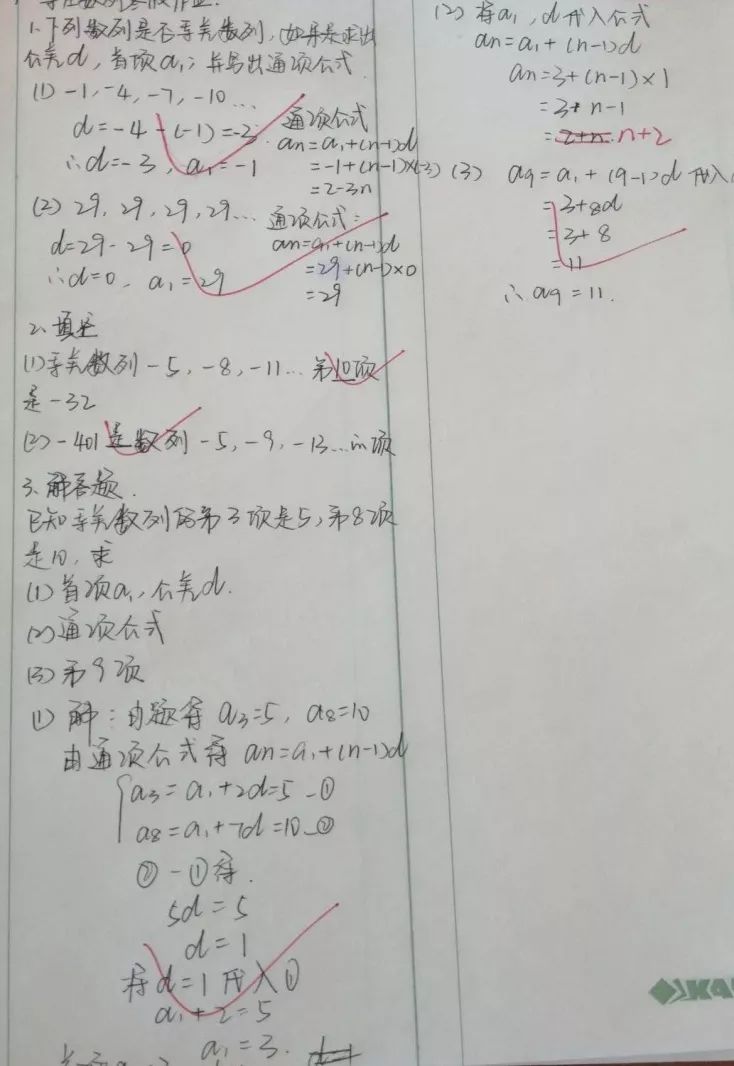 1、下列数列是否等差数列，如果是求出
公差d，首项a₁；并写出通项公式.
(1) -1, -4, -7, -10 …
d=-4-(-1)=-3
∴d=-3, a₁=-1
通项公式
an=a₁+(n-1)d
=-1+(n-1)×(-3)
=2-3n
(2) 29, 29, 29, 29…
d=29-29=0
∴d=0, a₁=29
通项公式:
an=a₁+(n-1)d
=29+(n-1)×0
=29
2、填空
(1)等差数列-5, -8, -11… 第10项
是-32
(2) -401是数列-5, -9, -13…的项
3、解答题.
已知等差数列的第3项是5, 第8项
是10, 求
(1)首项a₁, 公差d.
(2)通项公式
(3)第9项
(1) 解: 由题得 a₃=5, a₈=10
由通项公式得 an=a₁+(n-1)d
a₃=a₁+2d=5 -①
a₈=a₁+7d=10 -②
②-①得.
5d=5
d=1
将d=1代入①
a₁+2=5
a₁=3.
(2) 将a₁, d代入公式
an=a₁+(n-1)d
an=3+(n-1)×1
=3+n-1
=2+n. n+2
(3) a₉=a₁+(9-1)d 代入
=3+8d
=3+8
=11
∴a₉=11.